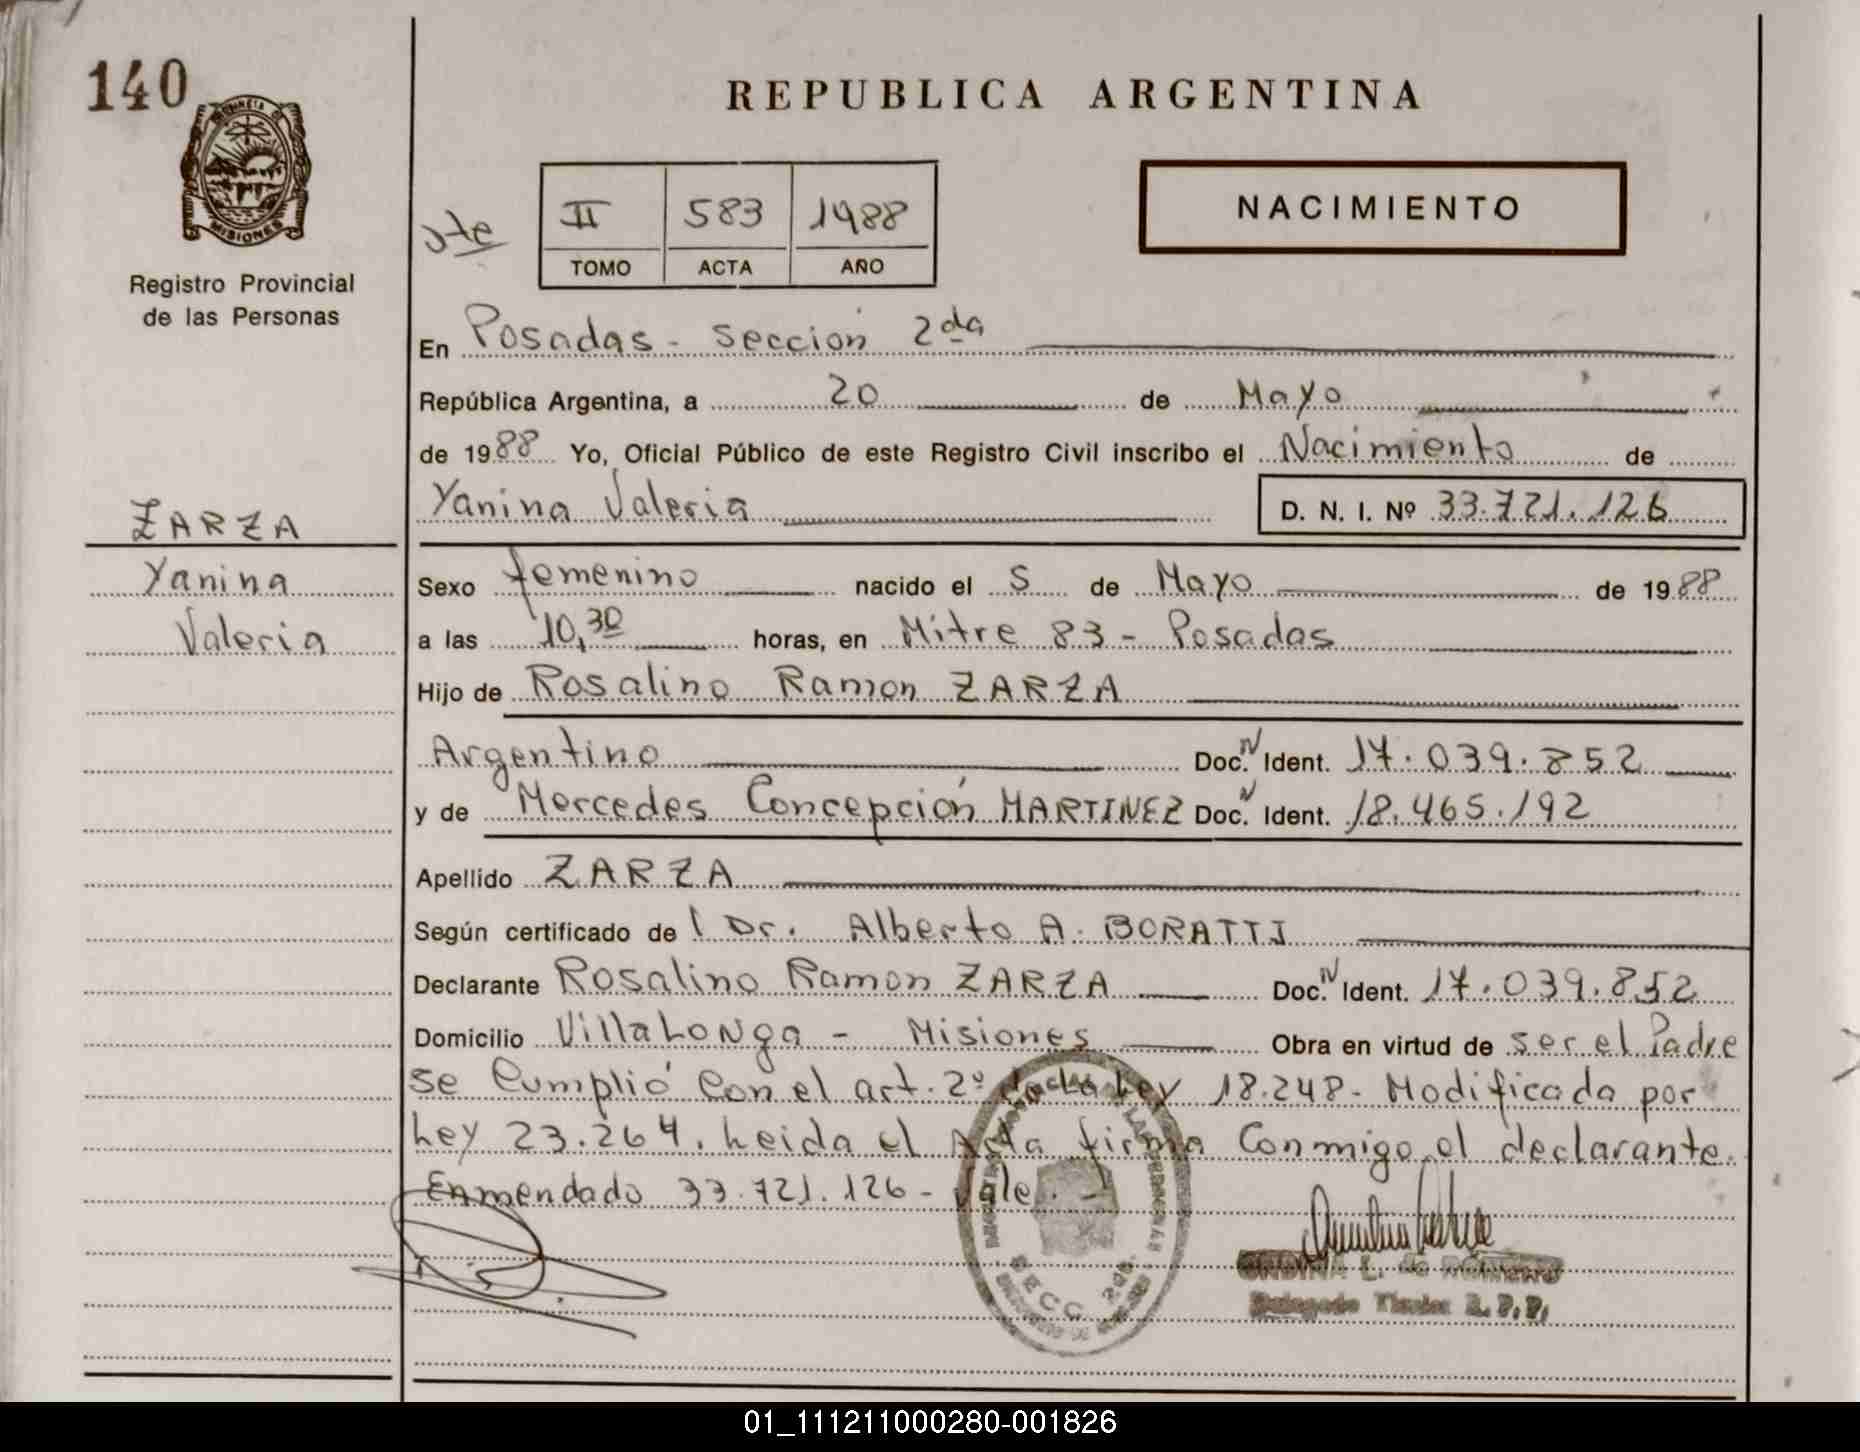 140
REPUBLICA ARGENTINA
PROVINCIA DE
MISIONES
Registro Provincial
de las Personas
II 583 1988
TOMO ACTA AÑO
NACIMIENTO
En Posadas - Sección 2da
República Argentina, a 20 de Mayo
de 1988 Yo, Oficial Público de este Registro Civil inscribo el Nacimiento de
Yanina Valeria D. N. I. Nº 33.721.126
ZARZA
Yanina
Valeria
Sexo femenino nacido el 5 de Mayo de 1988
a las 10,30 horas, en Mitre 83 - Posadas
Hijo de Rosalino Ramon ZARZA
Argentino Doc. N Ident. 17.039.852
y de Mercedes Concepción MARTINEZ Doc. N Ident. 18.465.192
Apellido ZARZA
Según certificado de l Dr. Alberto A. BORATTI
Declarante Rosalino Ramon ZARZA Doc. N Ident. 17.039.852
Domicilio Villalonga - Misiones Obra en virtud de ser el Padre
se Cumplió Con el art. 2º de la Ley 18.248 - Modificada por
Ley 23.264. Leida el Acta firma Conmigo el declarante.
Enmendado 33.721.126 - Vale. -
SECC. 2da.
ONDINA L. de ROMERO
Delegado Titular R. P. P.
01_111211000280-001826